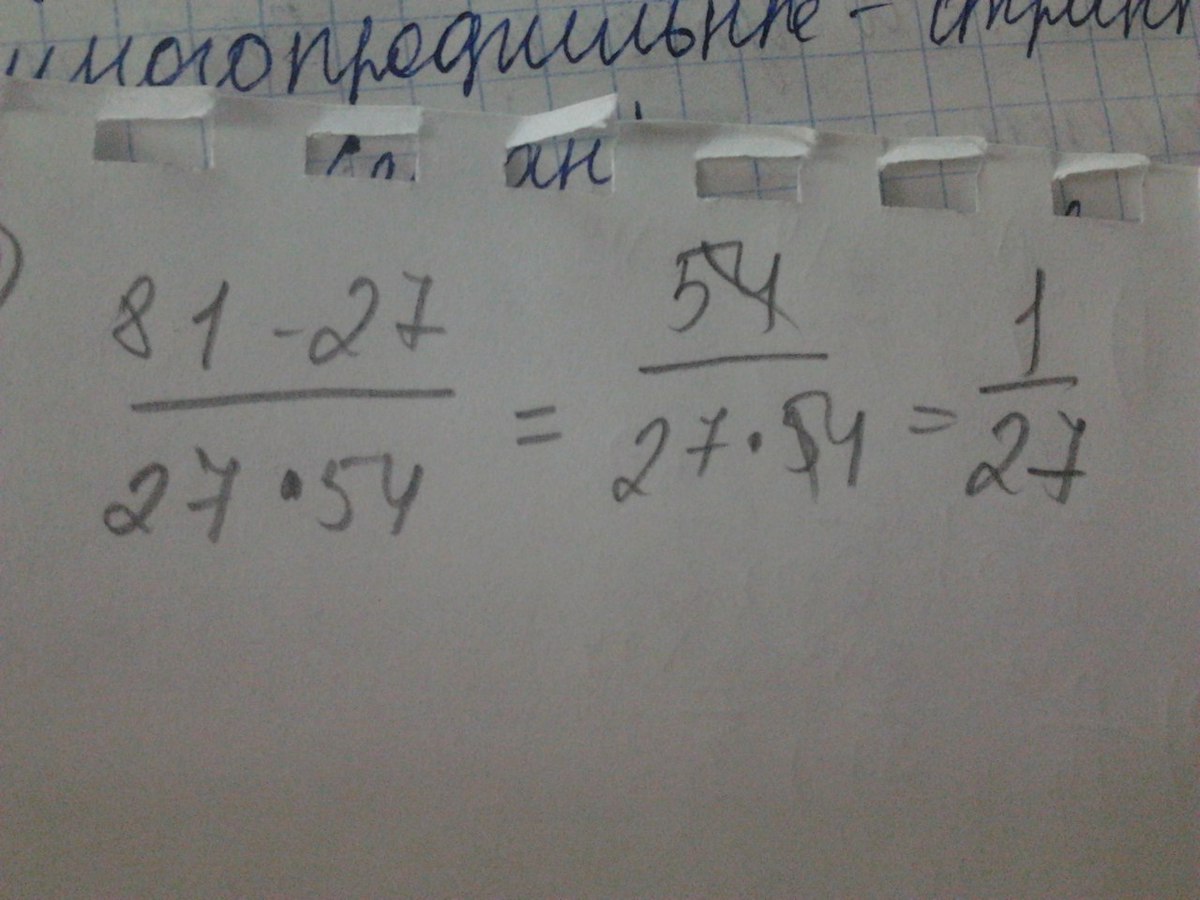 многопрофильные -
ан
81 - 27 / 27 · 54 = 54 / 27 · 54 = 1 / 27